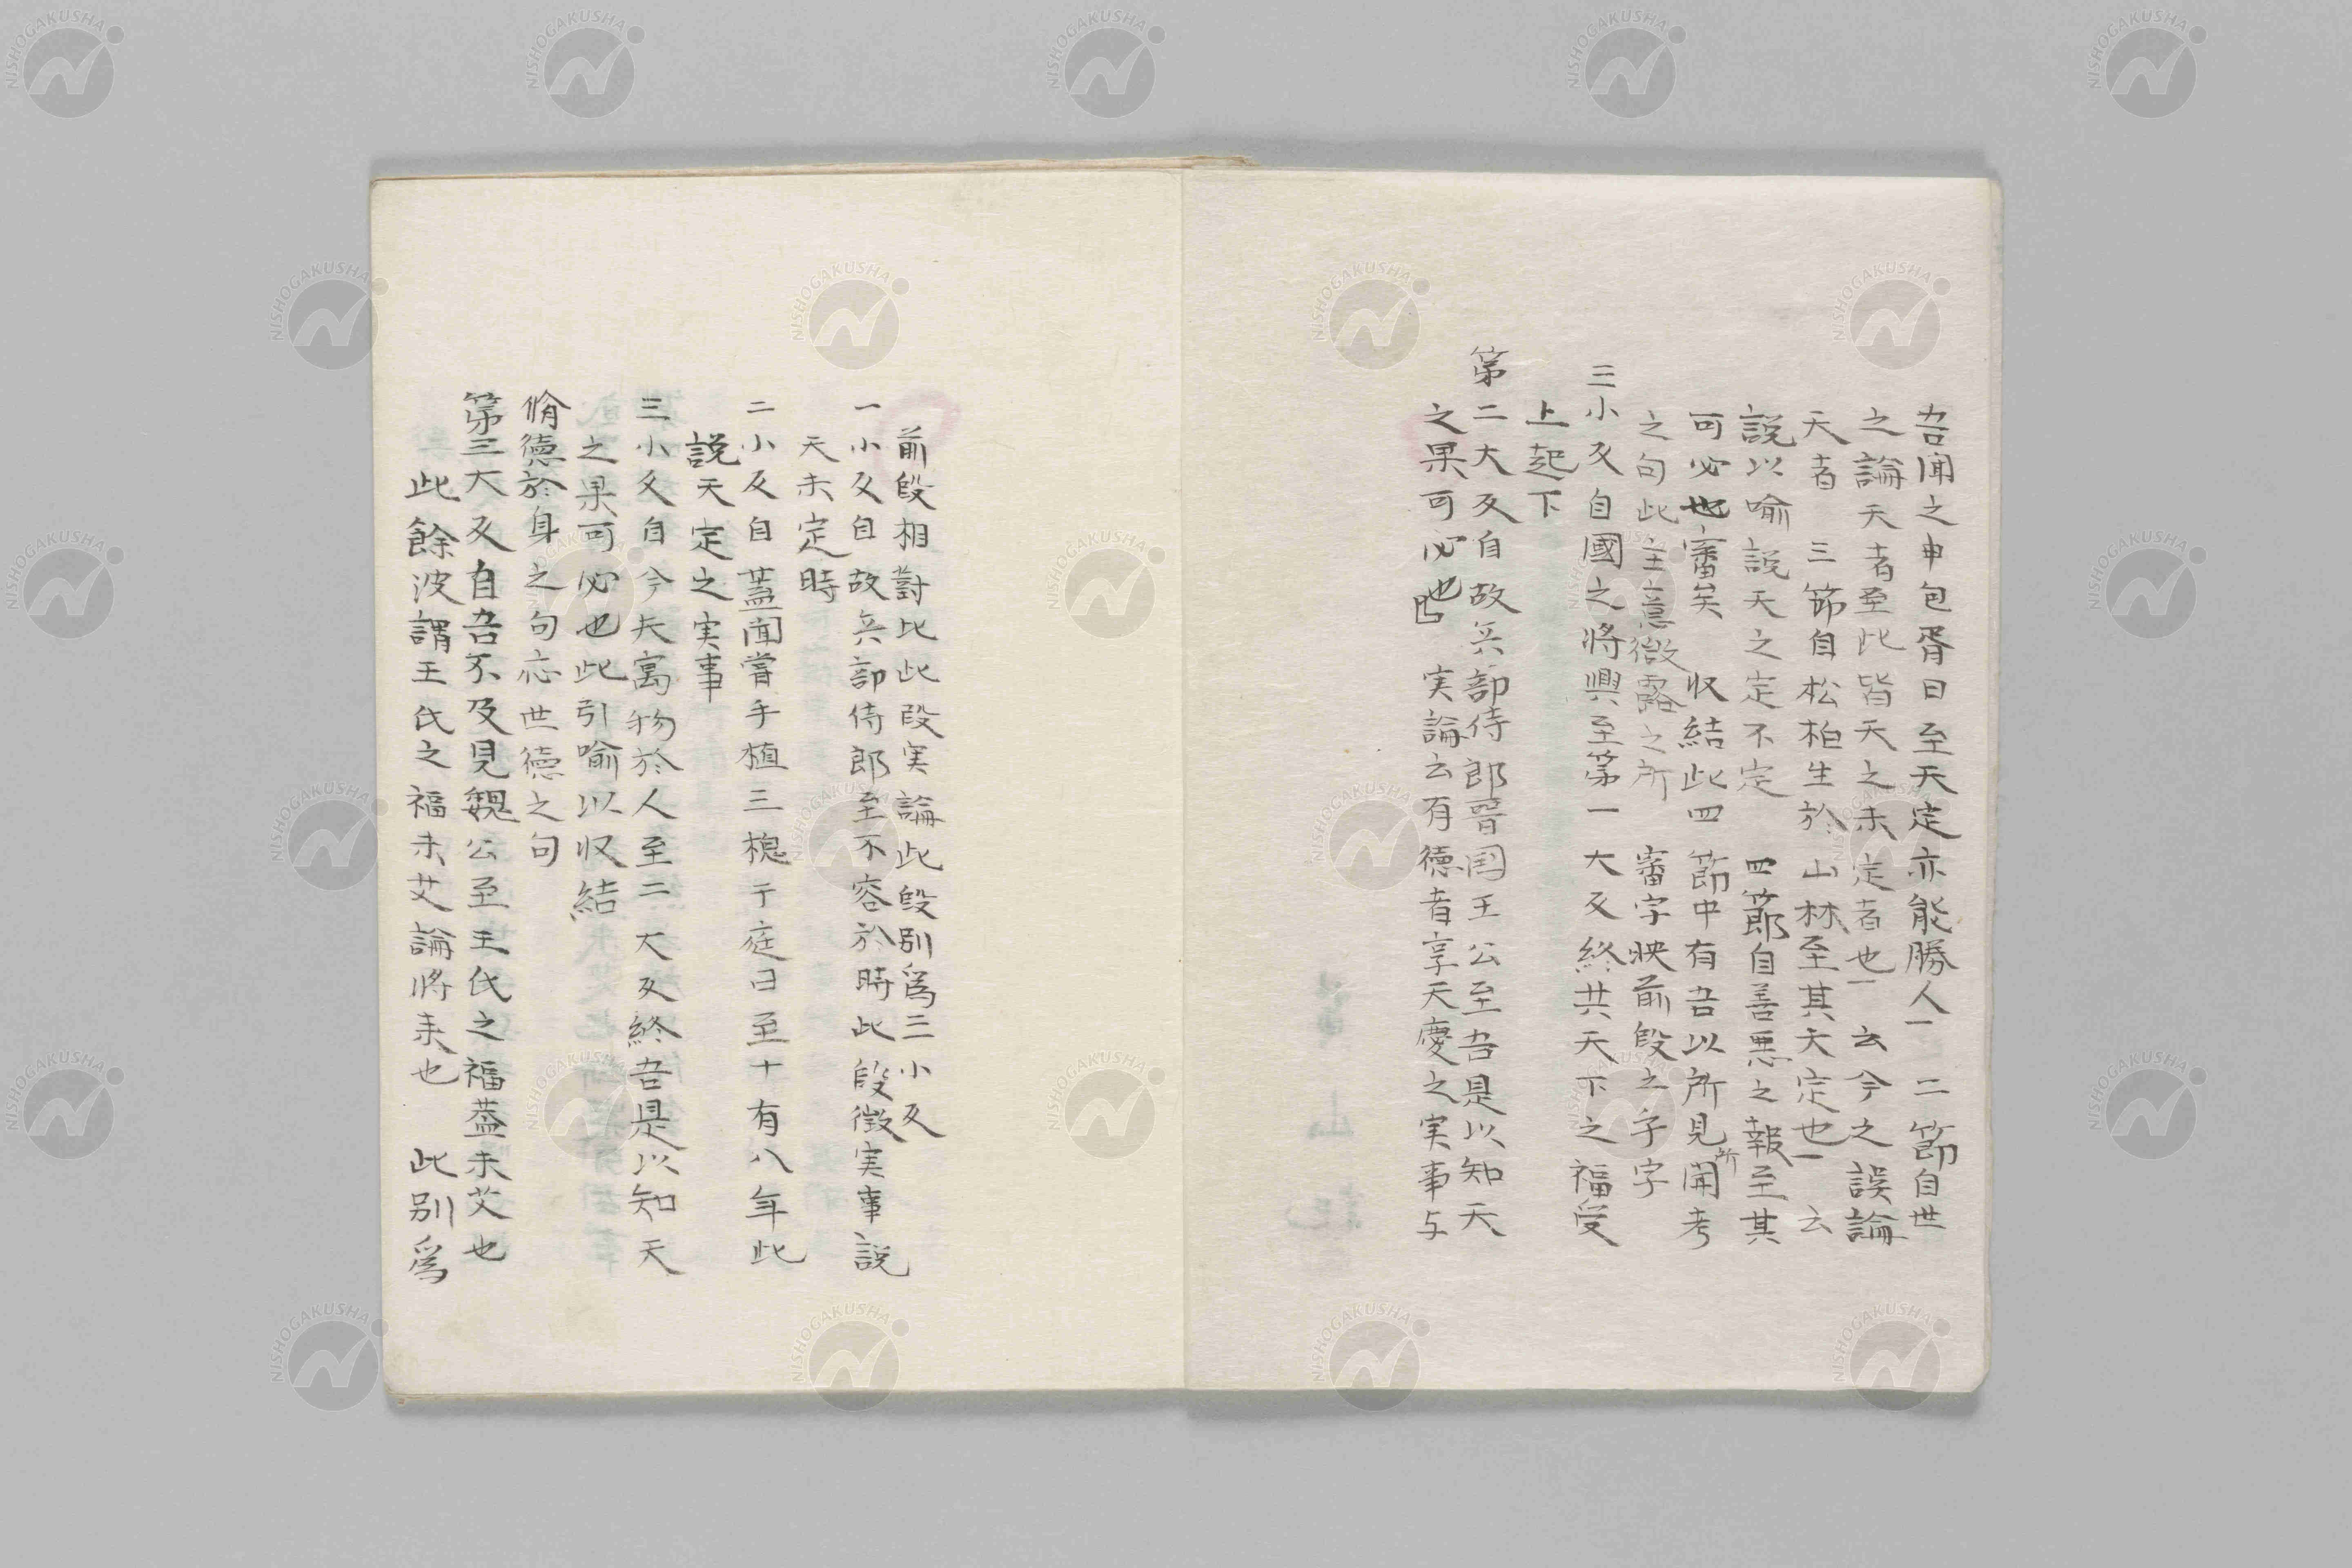 吾聞之申包胥曰至天定亦能勝人一 二節自世
之論天者至此皆天之未定者也一 云今之誤論
天者 三節自松柏生於山林至其天定也一 云
説以喻説天之定不定 四節自善悪之報至其
可必也審矣 収結此四節中有吾以所見所聞考
之句此主意微露之所 審字映前段之字字
三小反自國之將興至第一大反終共天下之福受
上起下
第二大反自故兵部侍郎晋国王公至吾是以知天
之果可必也 実論云有德者享天慶之実事与
前段相對比此段実論此段別爲三小反
一小反自故兵部侍郎至不容於時此段徴実事説
天未定時
二小反自蓋聞嘗手植三槐于庭曰至十有八年此
説天定之実事
三小反自今夫寓物於人至二大反終吾是以知天
之果可必也此引喻以収結
脩德於身之句応世德之句
第三大反自吾不及見魏公至王氏之福葢未艾也
此餘波謂王氏之福未艾論將来也 此別爲
NISHOGAKUSHA